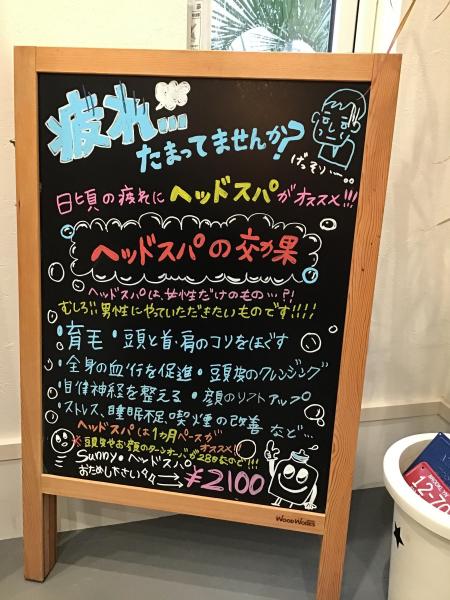 疲れ...
たまってませんか?
げっそりー...
日頃の疲れにヘッドスパがオススメ!!!
ヘッドスパの効果
ヘッドスパは、女性だけのもの…?!
むしろ!!男性にやっていただきたいものです!!!!
・育毛・頭と首・肩のコリをほぐす
・全身の血行を促進・頭皮のクレンジング
・自律神経を整える・顔のリフトアップ
・ストレス、睡眠不足、喫煙の改善 など…
ヘッドスパは1ヵ月ペースがオススメ!!
※頭皮やお顔のターンオーバーが28日なので!!!
Sunny・ヘッドスパ
おためし下さい!! → ¥2100
WOOD WORKS
12-70